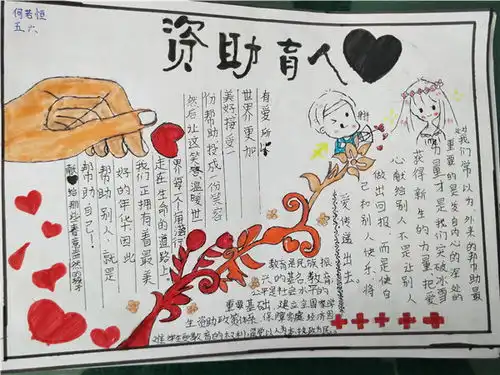 何若恒
五六
资助育人
有爱所以
世界更加
美好接受一
份帮助投成一份笑容
然后让这笑容温暖世
界每个角落行
走在生命的道路上
我们正拥有着最美
好的年华因此
帮助别人,就是
帮助自己!
献给那些着急温暖的孩子
我们常常以为外来的帮助最
重要的是发自内心的深处的
力量才是我们突破冰雪
获得新生的力量把爱
心献给别人不是让别人
做出回报而是使自
己和别人快乐将
爱传递出去
教育是民族振
兴的基石,教育
公平是社会公平的
重要基础,建立全国家学
生资助政策体系,保障家庭经济困
难学生受教育的权利,是以人为本执政为民